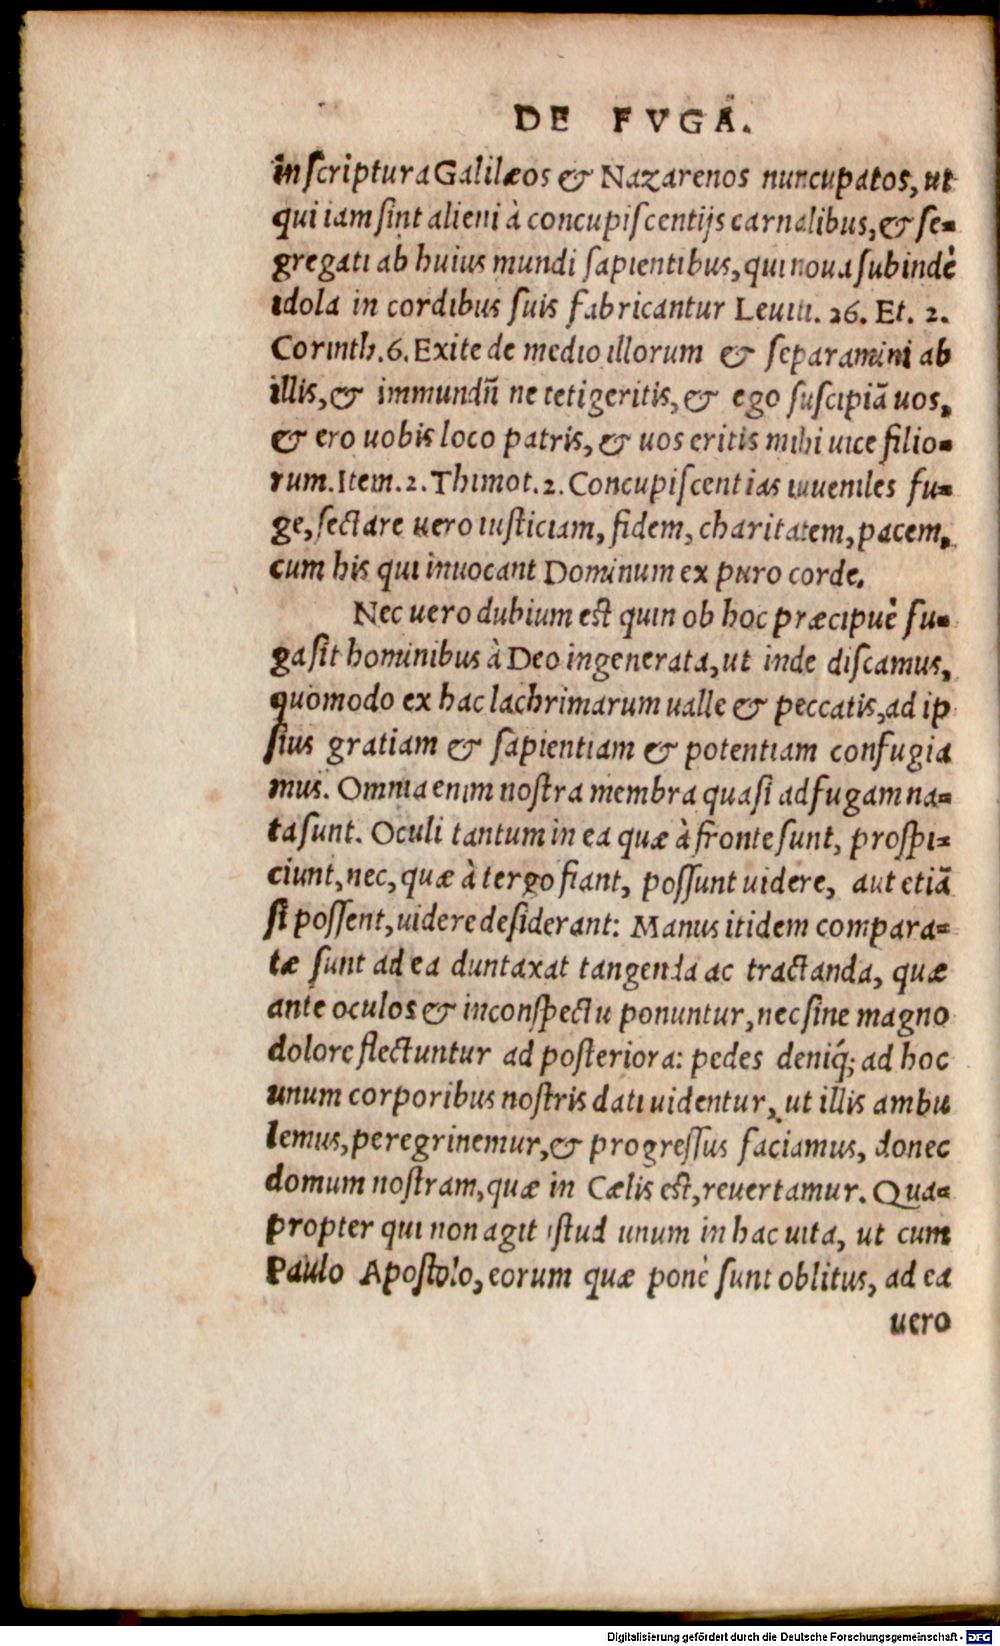 DE FVGA.
in scriptura Galilæos & Nazarenos nuncupatos, ut
qui iam sint alieni à concupiscentijs carnalibus, & se-
gregati ab huius mundi sapientibus, qui noua subindè
idola in cordibus suis fabricantur Leuiti. 26. Et. 2.
Corinth. 6. Exite de medio illorum & separamini ab
illis, & immundũ ne tetigeritis, & ego suscipiã uos,
& ero uobis loco patris, & uos eritis mihi uice filio-
rum. Item. 2. Thimot. 2. Concupiscentias iuueniles fu-
ge, sectare uero iusticiam, fidem, charitatem, pacem,
cum his qui inuocant Dominum ex puro corde.
Nec uero dubium est quin ob hoc præcipuè fu-
ga sit hominibus à Deo ingenerata, ut inde discamus,
quomodo ex hac lachrimarum ualle & peccatis, ad ip
sius gratiam & sapientiam & potentiam confugia
mus. Omnia enim nostra membra quasi ad fugam na-
ta sunt. Oculi tantum in ea quæ à fronte sunt, prospi-
ciunt, nec, quæ à tergo fiant, possunt uidere, aut etiã
si possent, uidere desiderant: Manus itidem compara-
tæ sunt ad ea duntaxat tangenda ac tractanda, quæ
ante oculos & in conspectu ponuntur, nec sine magno
dolore flectuntur ad posteriora: pedes deniq́; ad hoc
unum corporibus nostris dati uidentur, ut illis ambu
lemus, peregrinemur, & progressus faciamus, donec
domum nostram, quæ in Cælis est, reuertamur. Qua-
propter qui non agit istud unum in hac uita, ut cum
Paulo Apostolo, eorum quæ ponè sunt oblitus, ad ea
uero
Digitalisierung gefördert durch die Deutsche Forschungsgemeinschaft - DFG